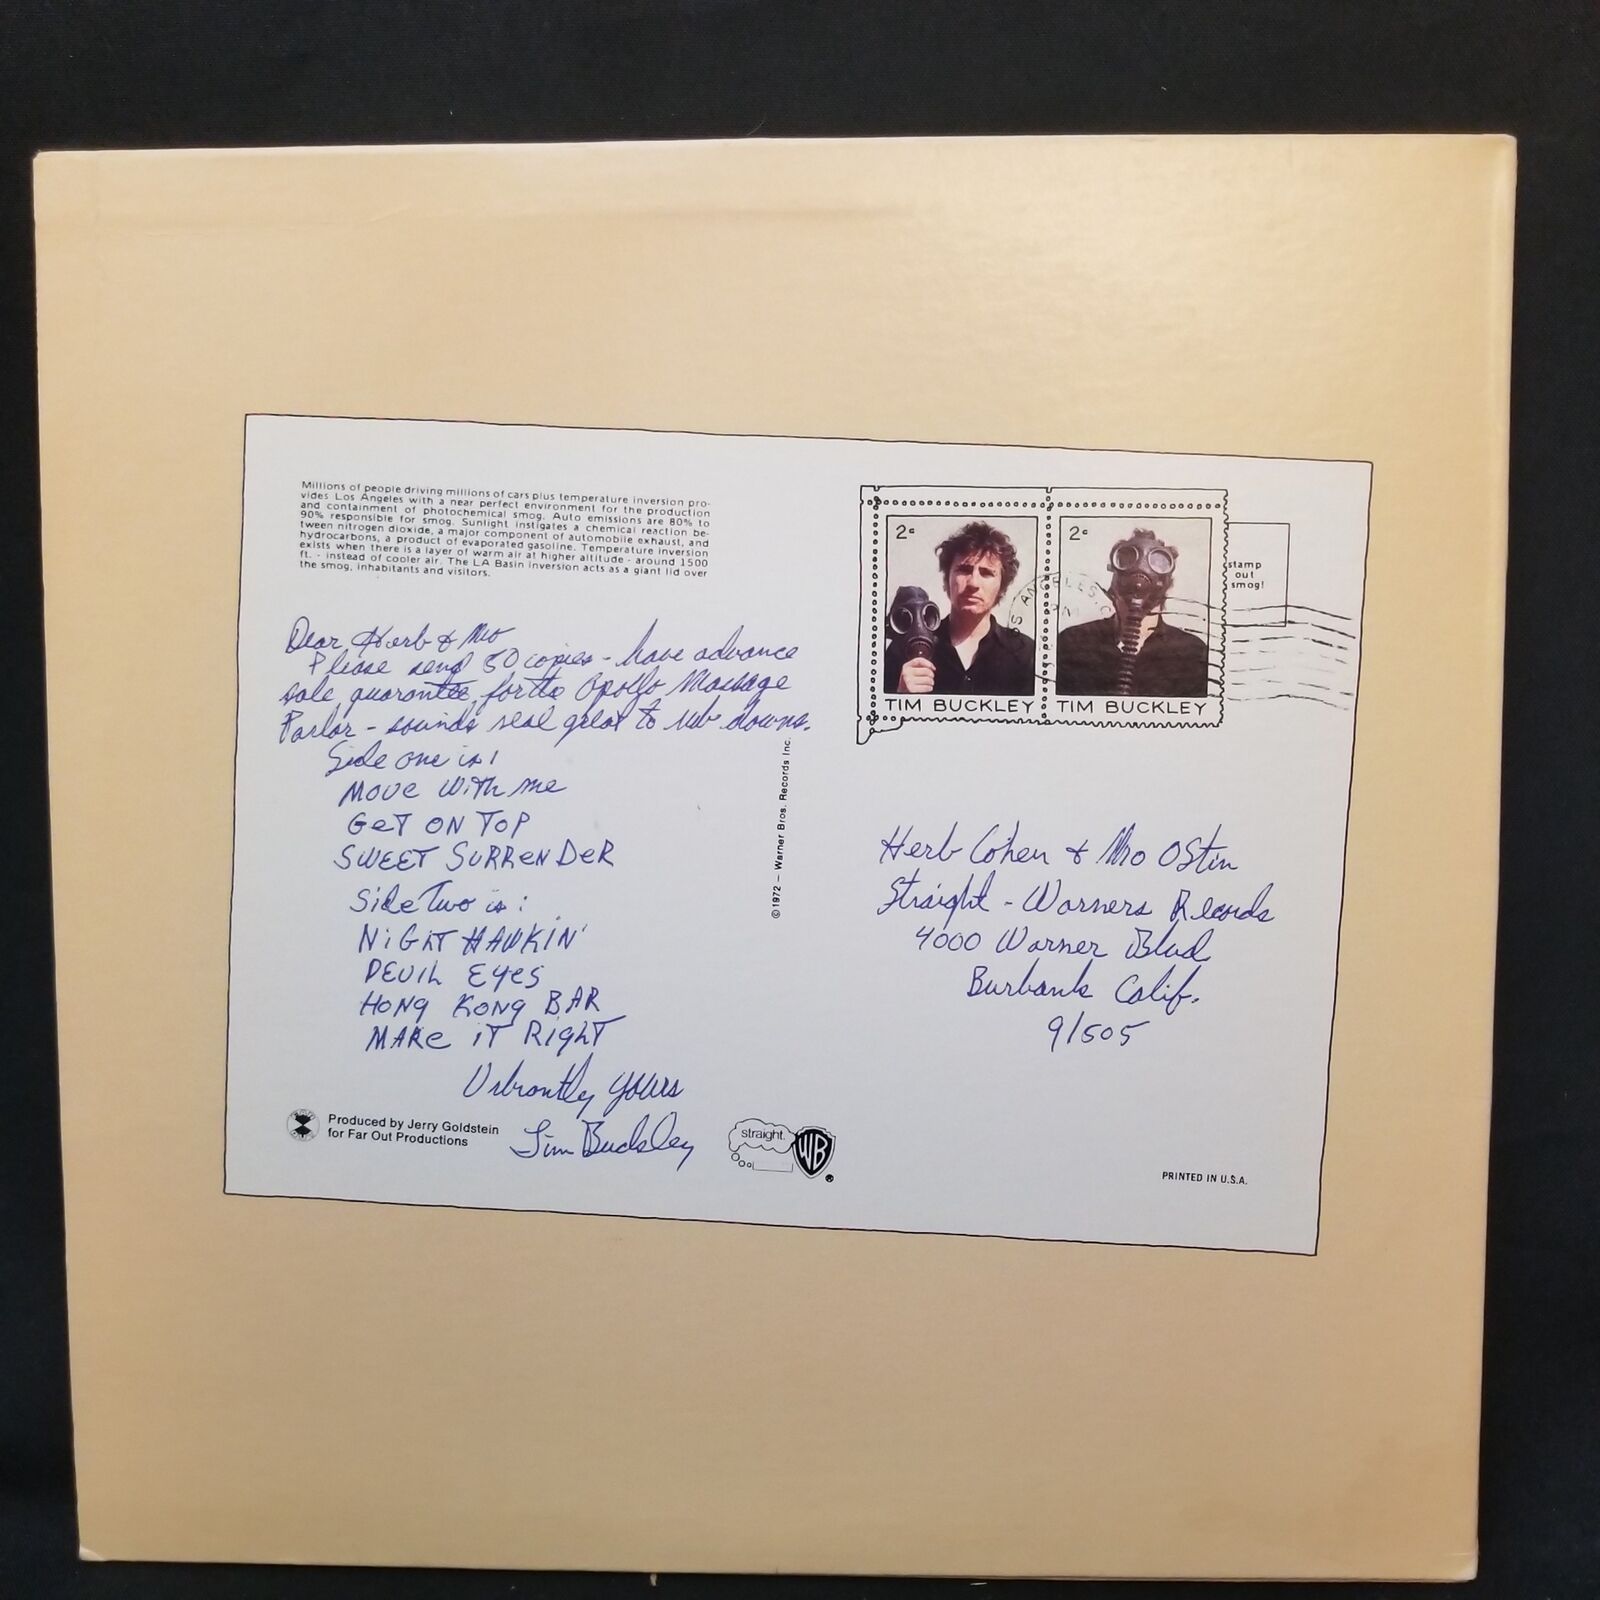 Millions of people driving millions of cars plus temperature inversion pro-
vides Los Angeles with a near perfect environment for the production
and containment of photochemical smog. Auto emissions are 80% to
90% responsible for smog. Sunlight instigates a chemical reaction be-
tween nitrogen dioxide, a major component of automobile exhaust, and
hydrocarbons, a product of evaporated gasoline. Temperature inversion
exists when there is a layer of warm air at higher altitude - around 1500
ft. - instead of cooler air. The LA Basin inversion acts as a giant lid over
the smog, inhabitants and visitors.
Dear Herb & Mo
Please send 50 copies - have advance
sale guarantee for the Apollo Massage
Parlor - sounds real great to rub downs.
Side one is!
Move With me
GeT ON TOP
SWEET SURReNDeR
Side Two is:
NiGHT HAWKIN'
DEVIL EYes
HONg KONg BAR
MAKe iT RigHT
Urbrontly yours
Tim Buckley
Produced by Jerry Goldstein
for Far Out Productions
straight.
WB
®
©1972 – Warner Bros. Records Inc.
2c
2c
TIM BUCKLEY
TIM BUCKLEY
LOS ANGELES
stamp
out
smog!
Herb Cohen & Mo Ostin
Straight - Warners Records
4000 Warner Blvd
Burbank Calif.
91505
PRINTED IN U.S.A.